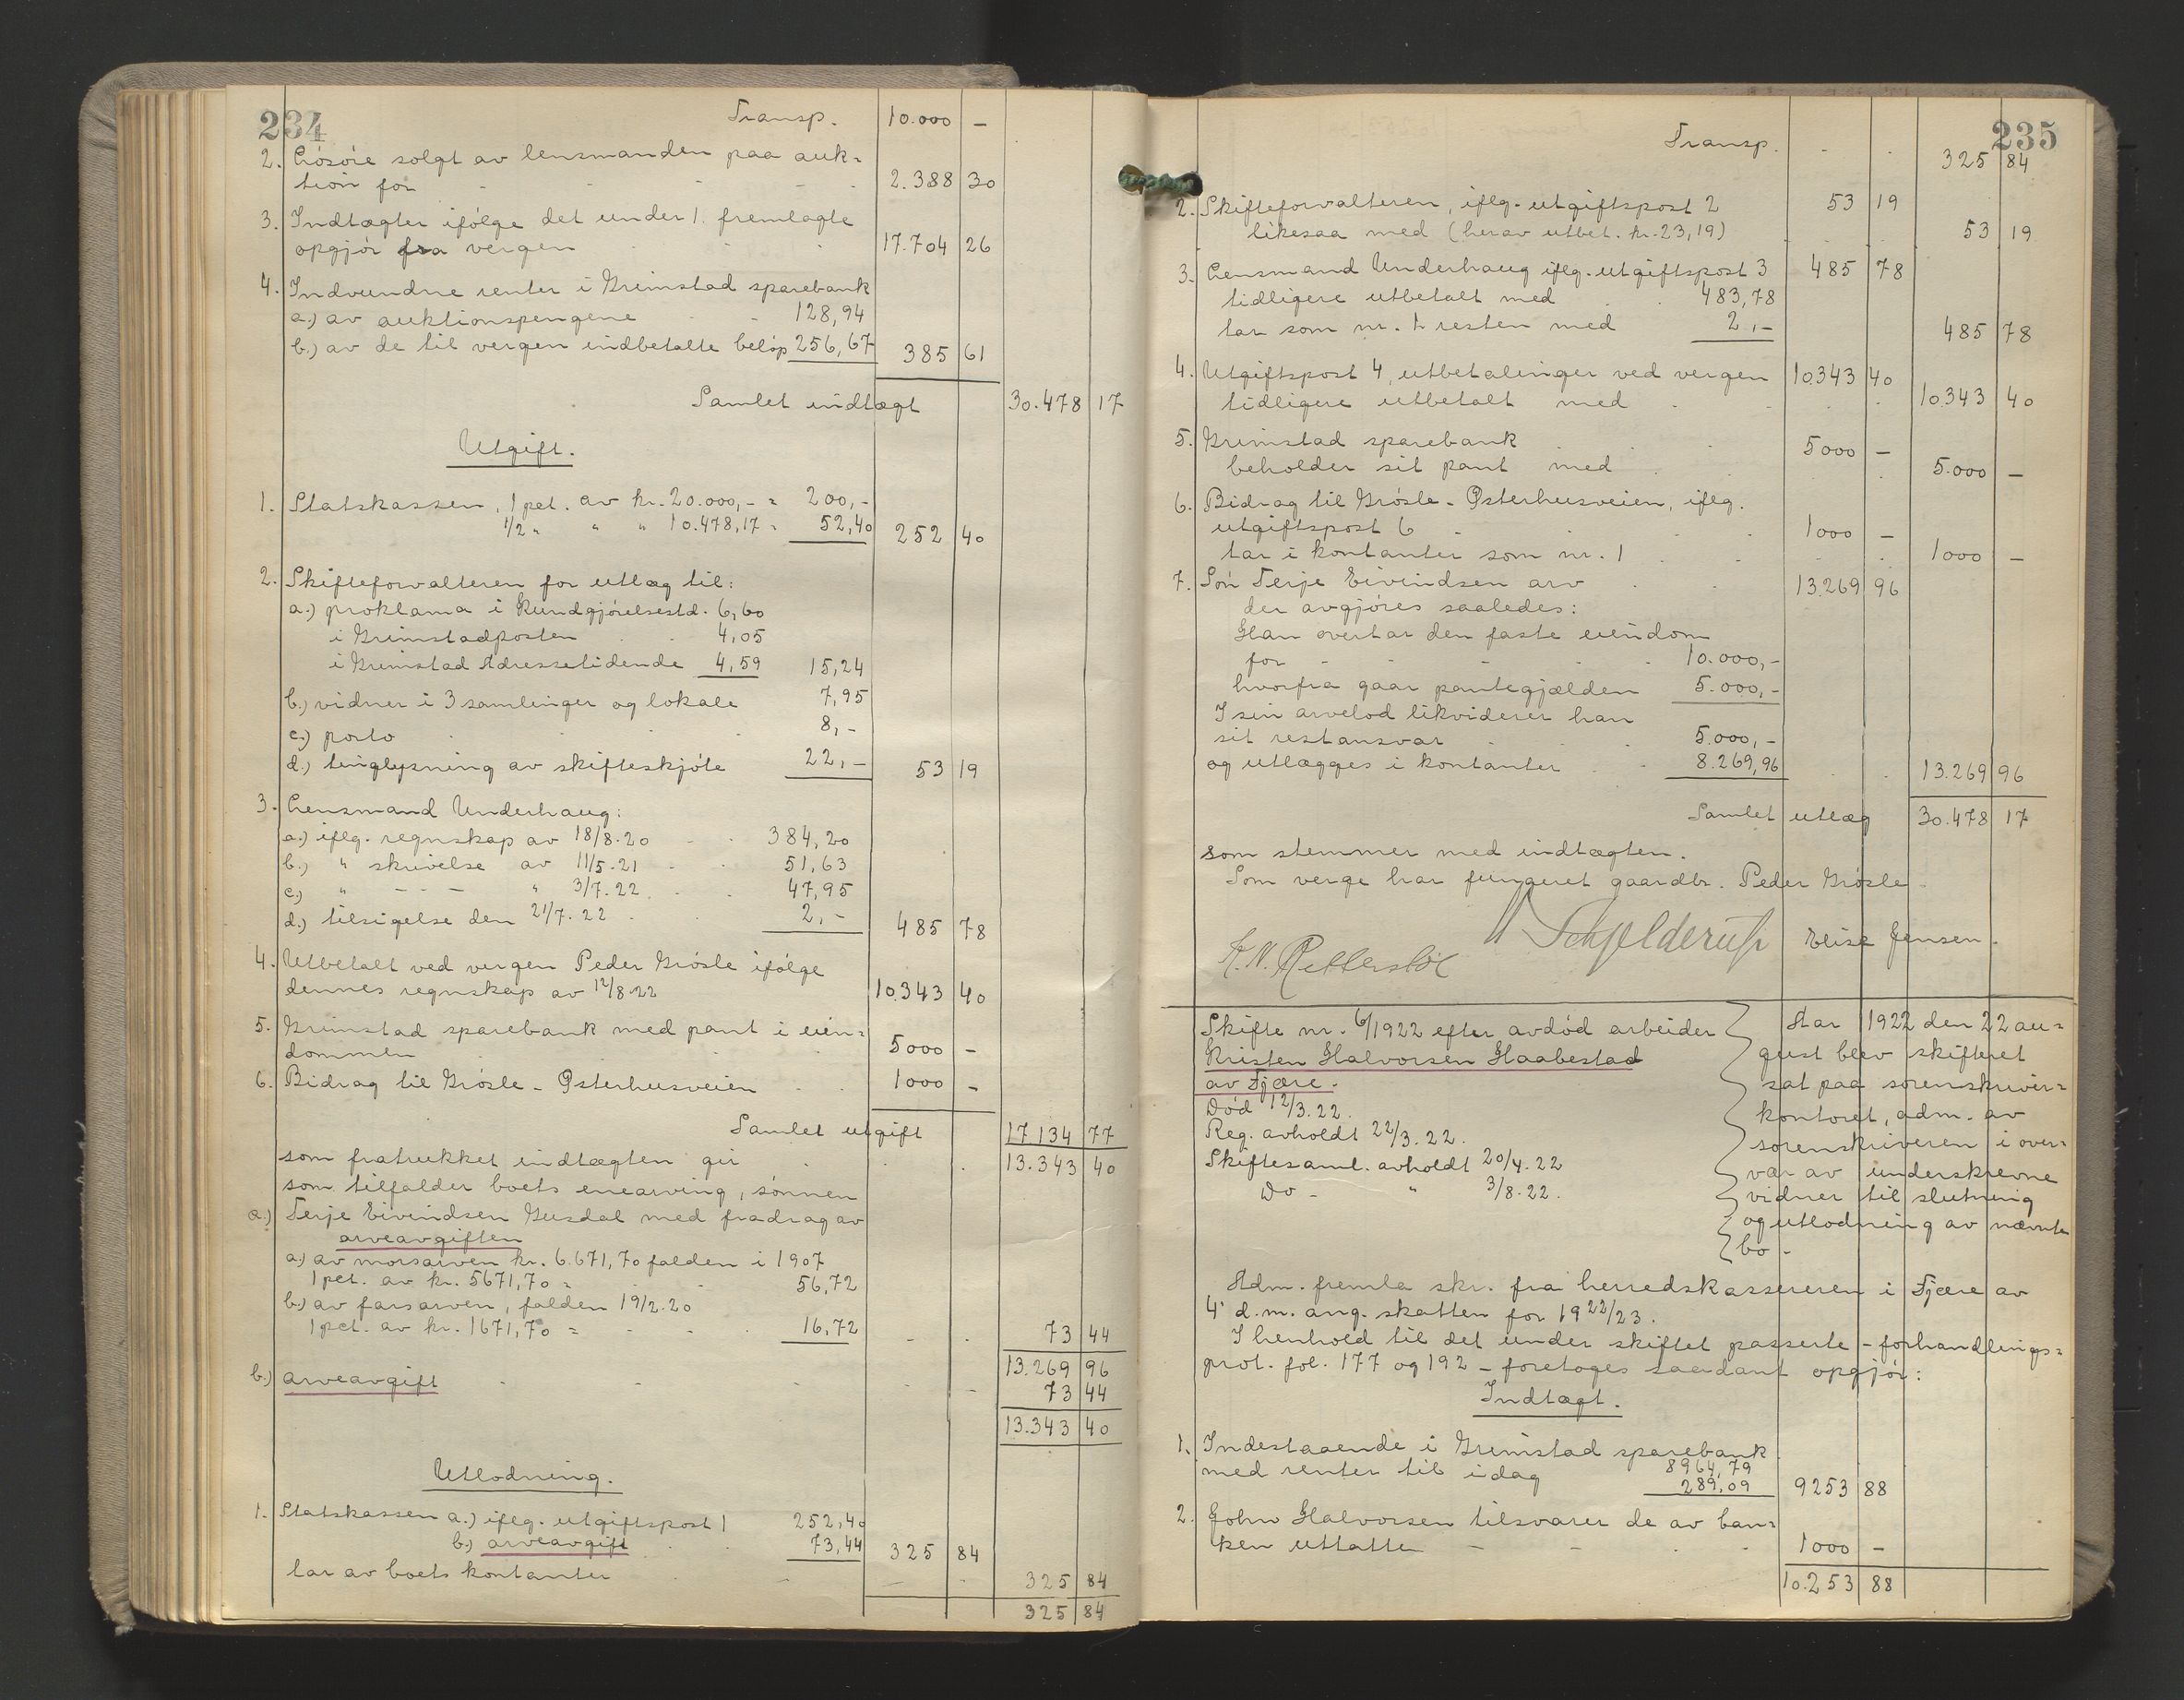 234
Transp. 10.000 –
2. Løsøre solgt av lensmanden paa auk-
tion for 2.388 30
3. Indtægter ifølge det under 1. fremlagte
opgjør fra vergen 17.704 26
4. Indvundne renter i Grimstad sparebank
a.) av auktionspengene 128,94
b.) av de til vergen indbetalte beløp 256,67 385 61
Samlet indtægt 30.478 17
Utgift.
1. Statskassen, 1 pct. av kr. 20.000,- = 200,-
1/2 " " " 10.478,17 = 52,40 252 40
2. Skifteforvalteren for utlæg til:
a.) proklama i Kundgjørelsestd. 6,60
i Grimstadposten 4,05
i Grimstad Adressetidende 4,59 15,24
b.) vidner i 3 samlinger og lokale 7,95
c.) porto 8,-
d.) tinglysning av skifteskjøte 22,- 53 19
3. Lensmand Underhaug:
a.) iflg. regnskap av 18/8-20 384,20
b.) " skrivelse av 11/5-21 51,63
c.) " - - - " 3/7-22 47,95
d.) tilsigelse den 21/7-22 2,- 485 78
4. Utbetalt ved vergen Peder Grøsle ifølge
dennes regnskap av 12/8-22 10.343 40
5. Grimstad sparebank med pant i eien-
dommen 5000 –
6. Bidrag til Grøsle - Østerhusveien 1000 –
Samlet utgift 17134 77
som fratrukket indtægten gir 13.343 40
som tilfalder boets enearving, sønnen
a.) Terje Eivindsen Gusdal med fradrag av
arveavgiften
a) av morsarven kr. 6.671,70 falden i 1907
1 pct. av kr. 5671,70 = 56,72
b) av farsarven, falden 19/2-20
1 pct. av kr. 1671,70 = 16,72 73 44
13.269 96
b.) arveavgift 73 44
13.343 40
Utlodning.
1. Statskassen a.) iflg. utgiftspost 1 252,40
b.) arveavgift 73,44 325 84
tar av boets kontanter 325 84
325 84
235
Transp. 325 84
2. Skifteforvalteren, iflg. utgiftspost 2 53 19
likesaa med (herav utbet. kr. 23,19) 53 19
3. Lensmand Underhaug iflg. utgiftspost 3 485 78
tidligere utbetalt med 483,78
tar som nr. 1 resten med 2,- 485 78
4. Utgiftspost 4, utbetalinger ved vergen 10343 40
tidligere utbetalt med 10343 40
5. Grimstad sparebank 5000 –
beholder sit pant med 5.000 –
6. Bidrag til Grøsle - Østerhusveien, iflg.
utgiftspost 6 1000 –
tar i kontanter som nr. 1 1000 –
7. Søn Terje Eivindsen arv 13.269 96
der avgjøres saaledes:
Han overtar den faste eiendom
for 10.000,-
hvorfra gaar pantegjælden 5.000,-
I sin arvelod likviderer han
sit restansvar 5.000,-
og utlægges i kontanter 8.269,96 13.269 96
Samlet utlæg 30.478 17
som stemmer med indtægten.
Som verge har fungeret gaardbr. Peder Grøsle.
Schjelderup Elise Jensen.
K. N. Retterstøl
Skifte nr. 6/1922 efter avdød arbeider
Kristen Halvorsen Haabestad
av Fjære.
Død 12/3.22.
Reg. avholdt 22/3.22.
Skiftesaml. avholdt 20/4.22
Do - " 3/8-22.
Aar 1922 den 22 au-
gust blev skifteret
sat paa sorenskriver-
kontoret, adm. av
sorenskriveren i over-
vær av underskrevne
vidner til slutning
og utlodning av nævnte
bo -
Adm. fremla skr. fra herredskassereren i Fjære av
4' d.m. ang. skatten for 1922/23.
I henhold til det under skiftet passerte - forhandlings-
prot. fol. 177 og 192 - foretoges saadant opgjør:
Indtægt.
1. Indestaaende i Grimstad sparebank 8964,79
med renter til idag 289,09 9253 88
2. John Halvorsen tilsvarer de av ban-
ken uttatte 1000 –
10.253 88